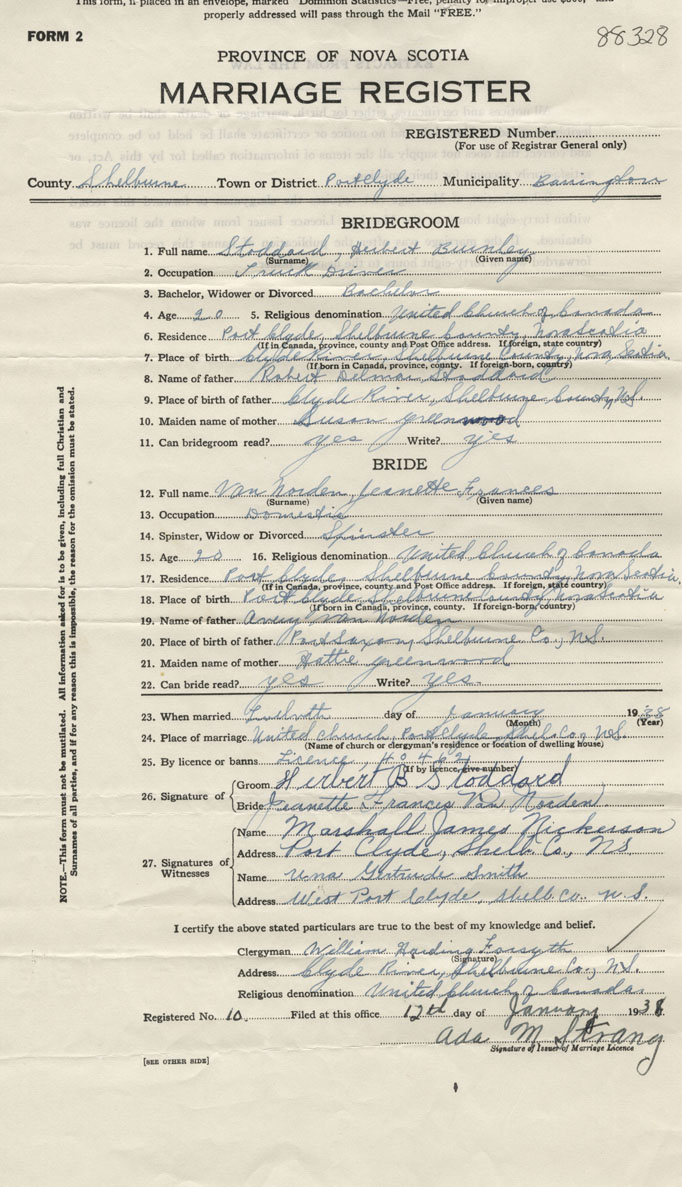 This form, if placed in an envelope, marked "Dominion Statistics—Free, penalty for improper use $300," and
properly addressed will pass through the Mail "FREE."
FORM 2
88328
PROVINCE OF NOVA SCOTIA
MARRIAGE REGISTER
REGISTERED Number
(For use of Registrar General only)
County Shelburne Town or District Port Clyde Municipality Barrington
BRIDEGROOM
1. Full name Stoddard, Herbert Burnley
(Surname) (Given name)
2. Occupation Truck Driver
3. Bachelor, Widower or Divorced Bachelor
4. Age 20 5. Religious denomination United Church of Canada
6. Residence Port Clyde, Shelburne County, Nova Scotia
(If in Canada, province, county and Post Office address. If foreign, state country)
7. Place of birth Clyde River, Shelburne County, Nova Scotia
(If born in Canada, province, county. If foreign-born, country)
8. Name of father Robert Delmar Stoddard
9. Place of birth of father Clyde River, Shelburne County, N.S.
10. Maiden name of mother Susan Greenwood
11. Can bridegroom read? yes Write? yes
BRIDE
12. Full name Van Norden, Jeanette Frances
(Surname) (Given name)
13. Occupation Domestic
14. Spinster, Widow or Divorced Spinster
15. Age 20 16. Religious denomination United Church of Canada
17. Residence Port Clyde, Shelburne County, Nova Scotia.
(If in Canada, province, county and Post Office address. If foreign, state country)
18. Place of birth Port Clyde Shelburne County Nova Scotia
(If born in Canada, province, county. If foreign-born, country)
19. Name of father Avery Van Norden
20. Place of birth of father Port Saxon, Shelburne Co., N.S.
21. Maiden name of mother Hattie Greenwood
22. Can bride read? yes Write? yes.
23. When married Twelvth day of January 1938
(Month) (Year)
24. Place of marriage United Church, Port Clyde, Shel. Co., N.S.
(Name of church or clergyman's residence or location of dwelling house)
25. By licence or banns Licence,
(If by licence, give number)
26. Signature of Groom Herbert B Stoddard
Bride Jeanette Frances Van Norden
27. Signatures of Witnesses
Name Marshall James Nickerson
Address Port Clyde, Shelb. Co., NS
Name Una Gertrude Smith
Address West Port Clyde, Shelb. Co. N.S.
I certify the above stated particulars are true to the best of my knowledge and belief.
Clergyman William Harding Forsyth
(Signature)
Address Clyde River, Shelburne Co., N.S.
Religious denomination United Church of Canada.
Registered No. 10. Filed at this office 12th day of January 1938
Ada M Strang
Signature of Issuer of Marriage Licence
[SEE OTHER SIDE]
NOTE.—This form must not be mutilated. All information asked for is to be given, including full Christian and
Surnames of all parties, and if for any reason this is impossible, the reason for the omission must be stated.